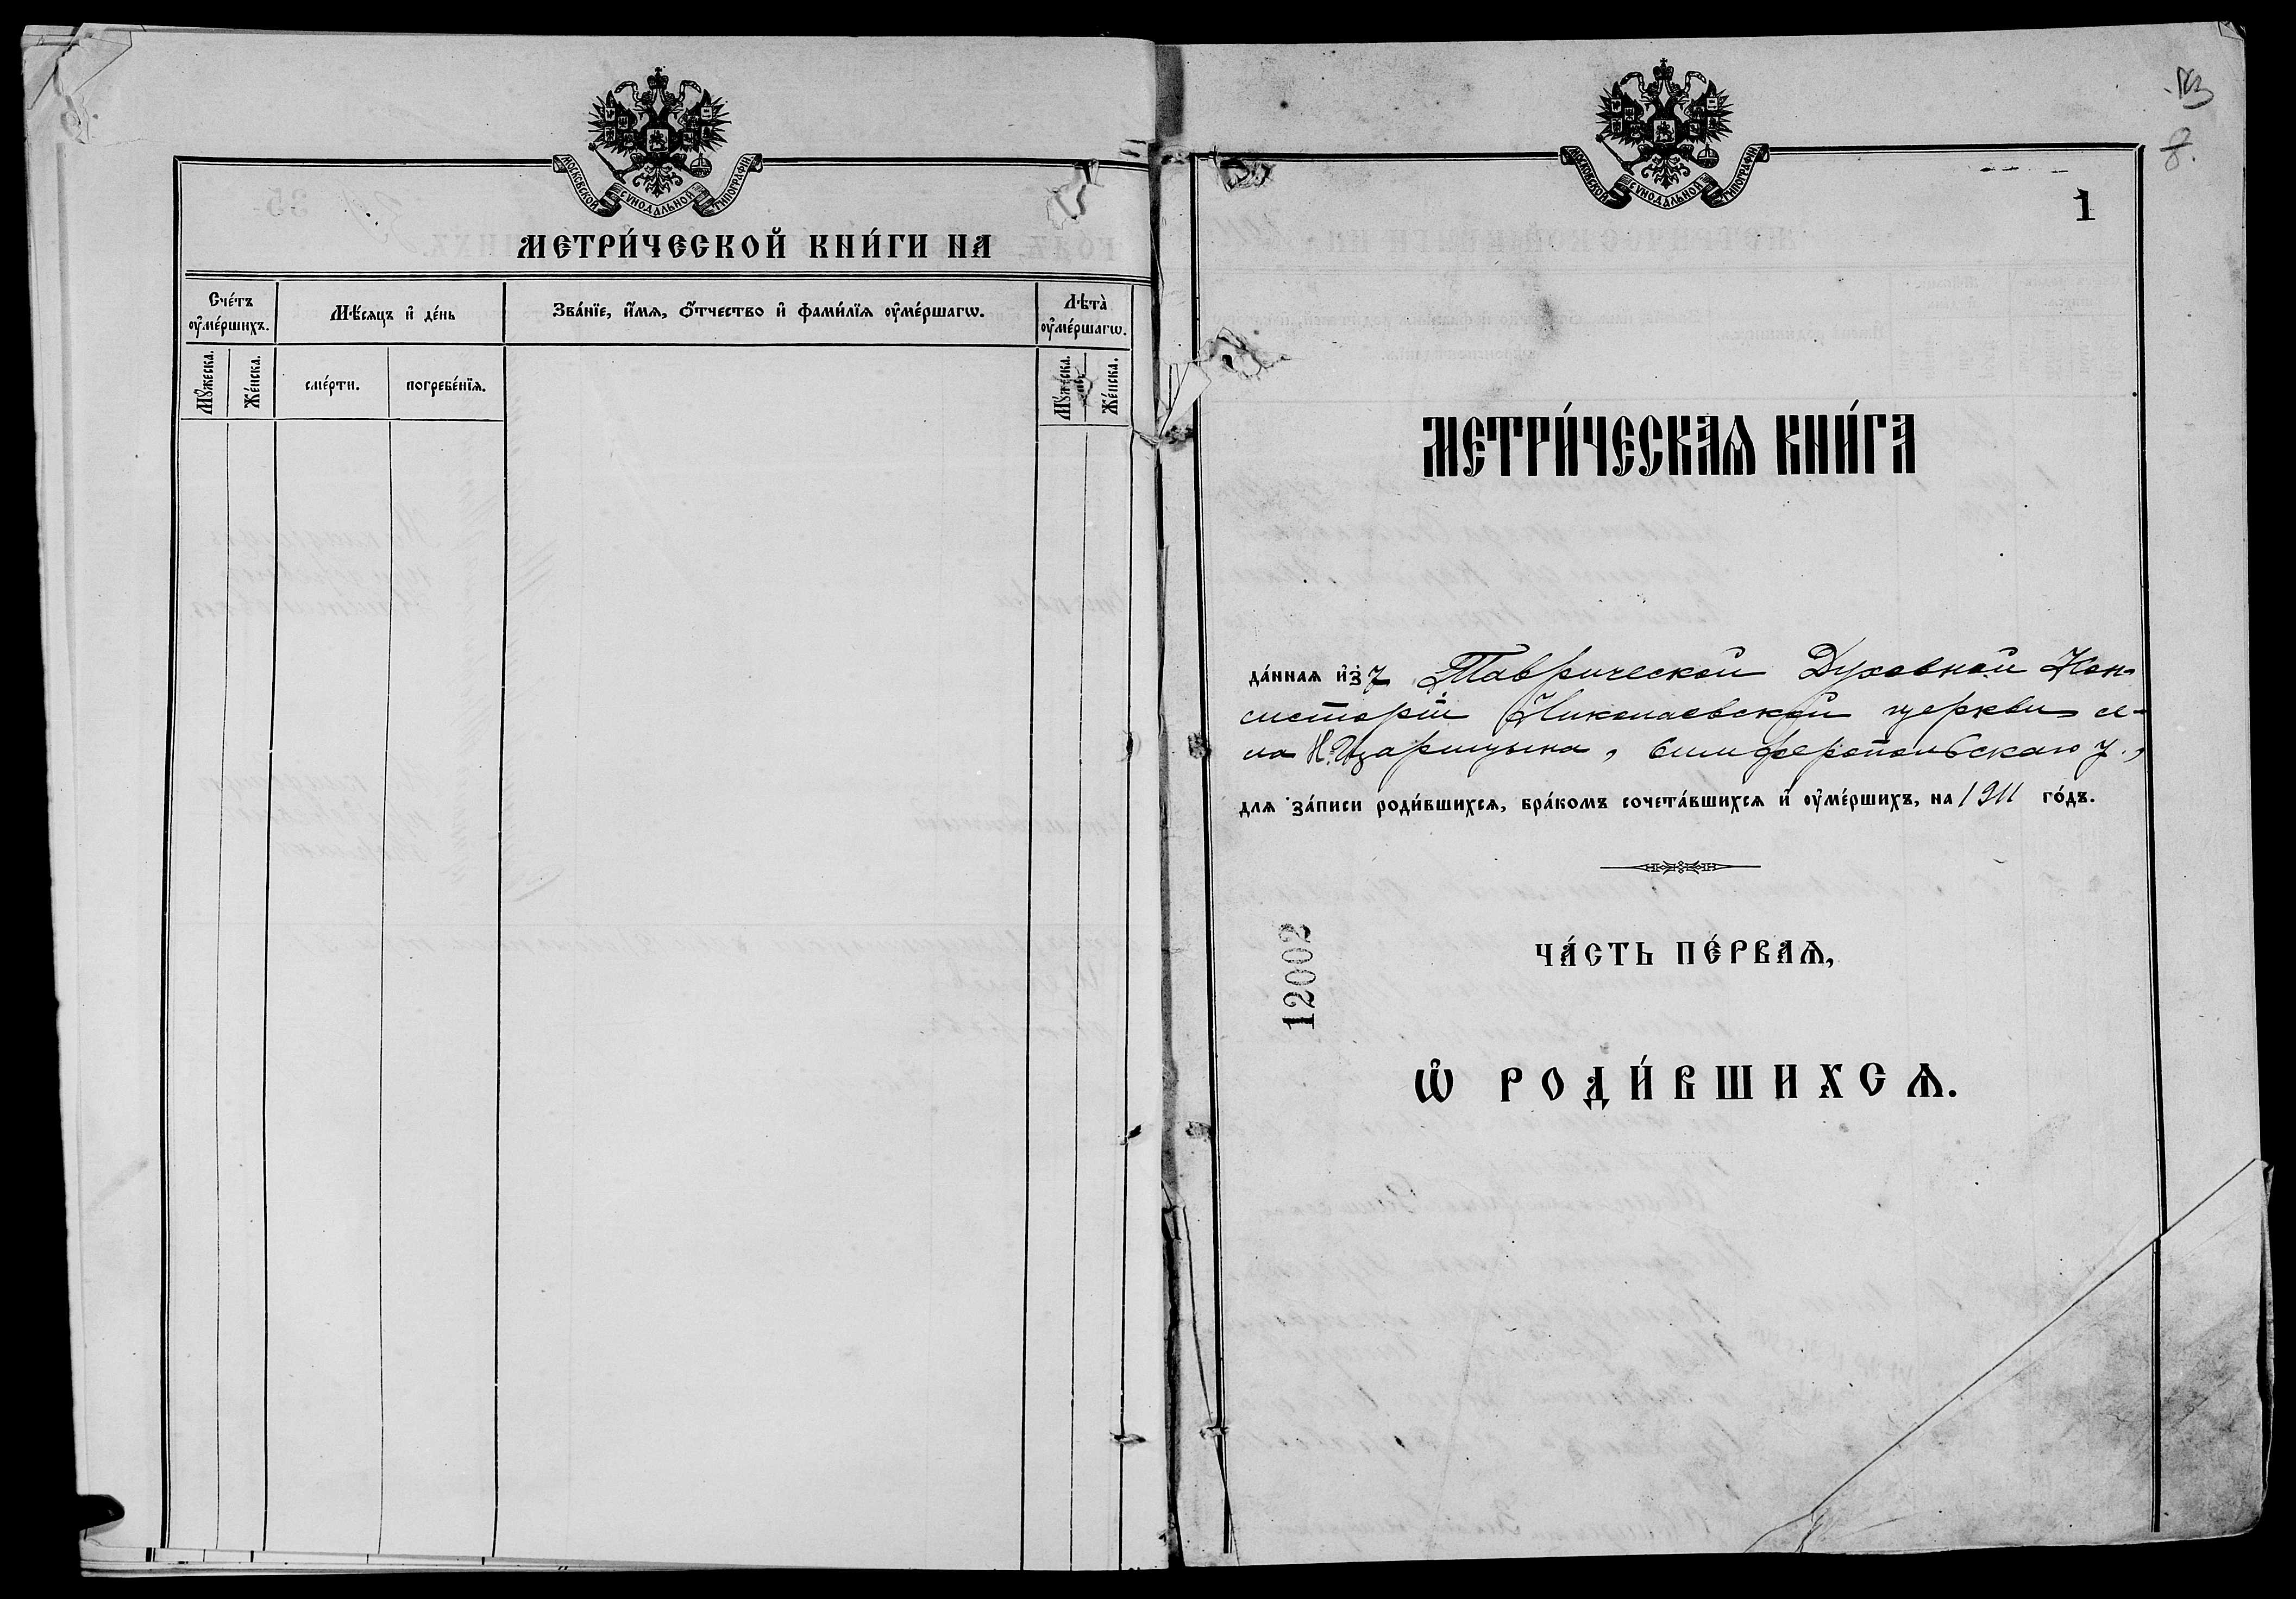 МОСКОВСКОЙ СѴНОДАЛЬНОЙ ТИПОГРАФІИ
МЕТРИ́ЧЕСКОЙ КНИ́ГИ НА
Сче́тъ ᲂу҆ме́ршихъ.
Мѣ́сяцъ и҆ де́нь
Зва́нїе, и҆́мѧ, ѻ҆́тчество и҆ фами́лїѧ ᲂу҆ме́ршагѡ.
Лѣта̀ ᲂу҆ме́ршагѡ.
Мꙋ́жеска.
Же́нска.
сме́рти.
погребе́нїѧ.
Мꙋ́жеска.
Же́нска.
8.
МОСКОВСКОЙ СѴНОДАЛЬНОЙ ТИПОГРАФІИ
1
МЕТРИ́ЧЕСКАѦ КНИ́ГА
да́ннаѧ и҆з̾ Таврической Духовной Кон-
систоріи Николаевской церкви се-
ла Н. Царицына, Симферопольскаго у.,
для за́писи роди́вшихсѧ, бра́комъ сочета́вшихсѧ и҆ ᲂу҆ме́ршихъ, на 1911 го́дъ.
12002
ЧА́СТЬ ПЕ́РВАѦ,
Ѡ҆ РОДИ́ВШИХСѦ.